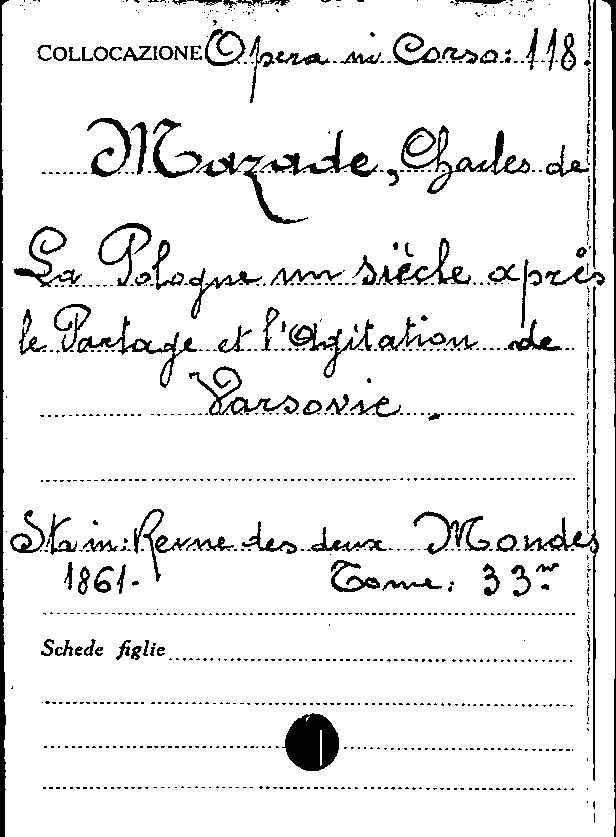 COLLOCAZIONE Opera in Corso: 118.
Mazade, Charles de
La Pologne un siècle après
le Partage et l'Agitation de
Varsovie.
Sta in: Revue des deux Mondes
1861. Tome: 33
Schede figlie